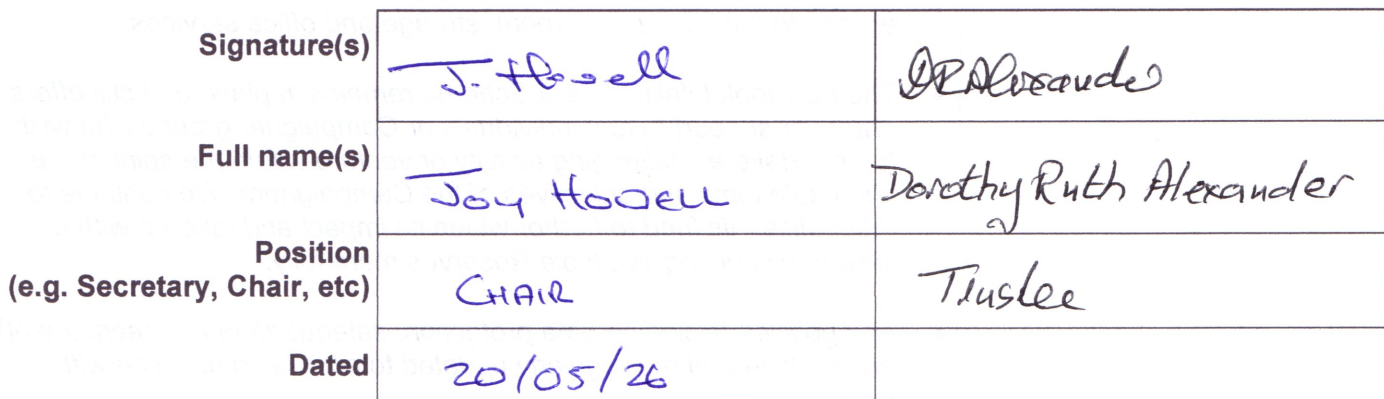 Signature(s) J. Howell DRAlexander
Full name(s) Joy HOWELL Dorothy Ruth Alexander
Position
(e.g. Secretary, Chair, etc) CHAIR Trustee
Dated 20/05/26